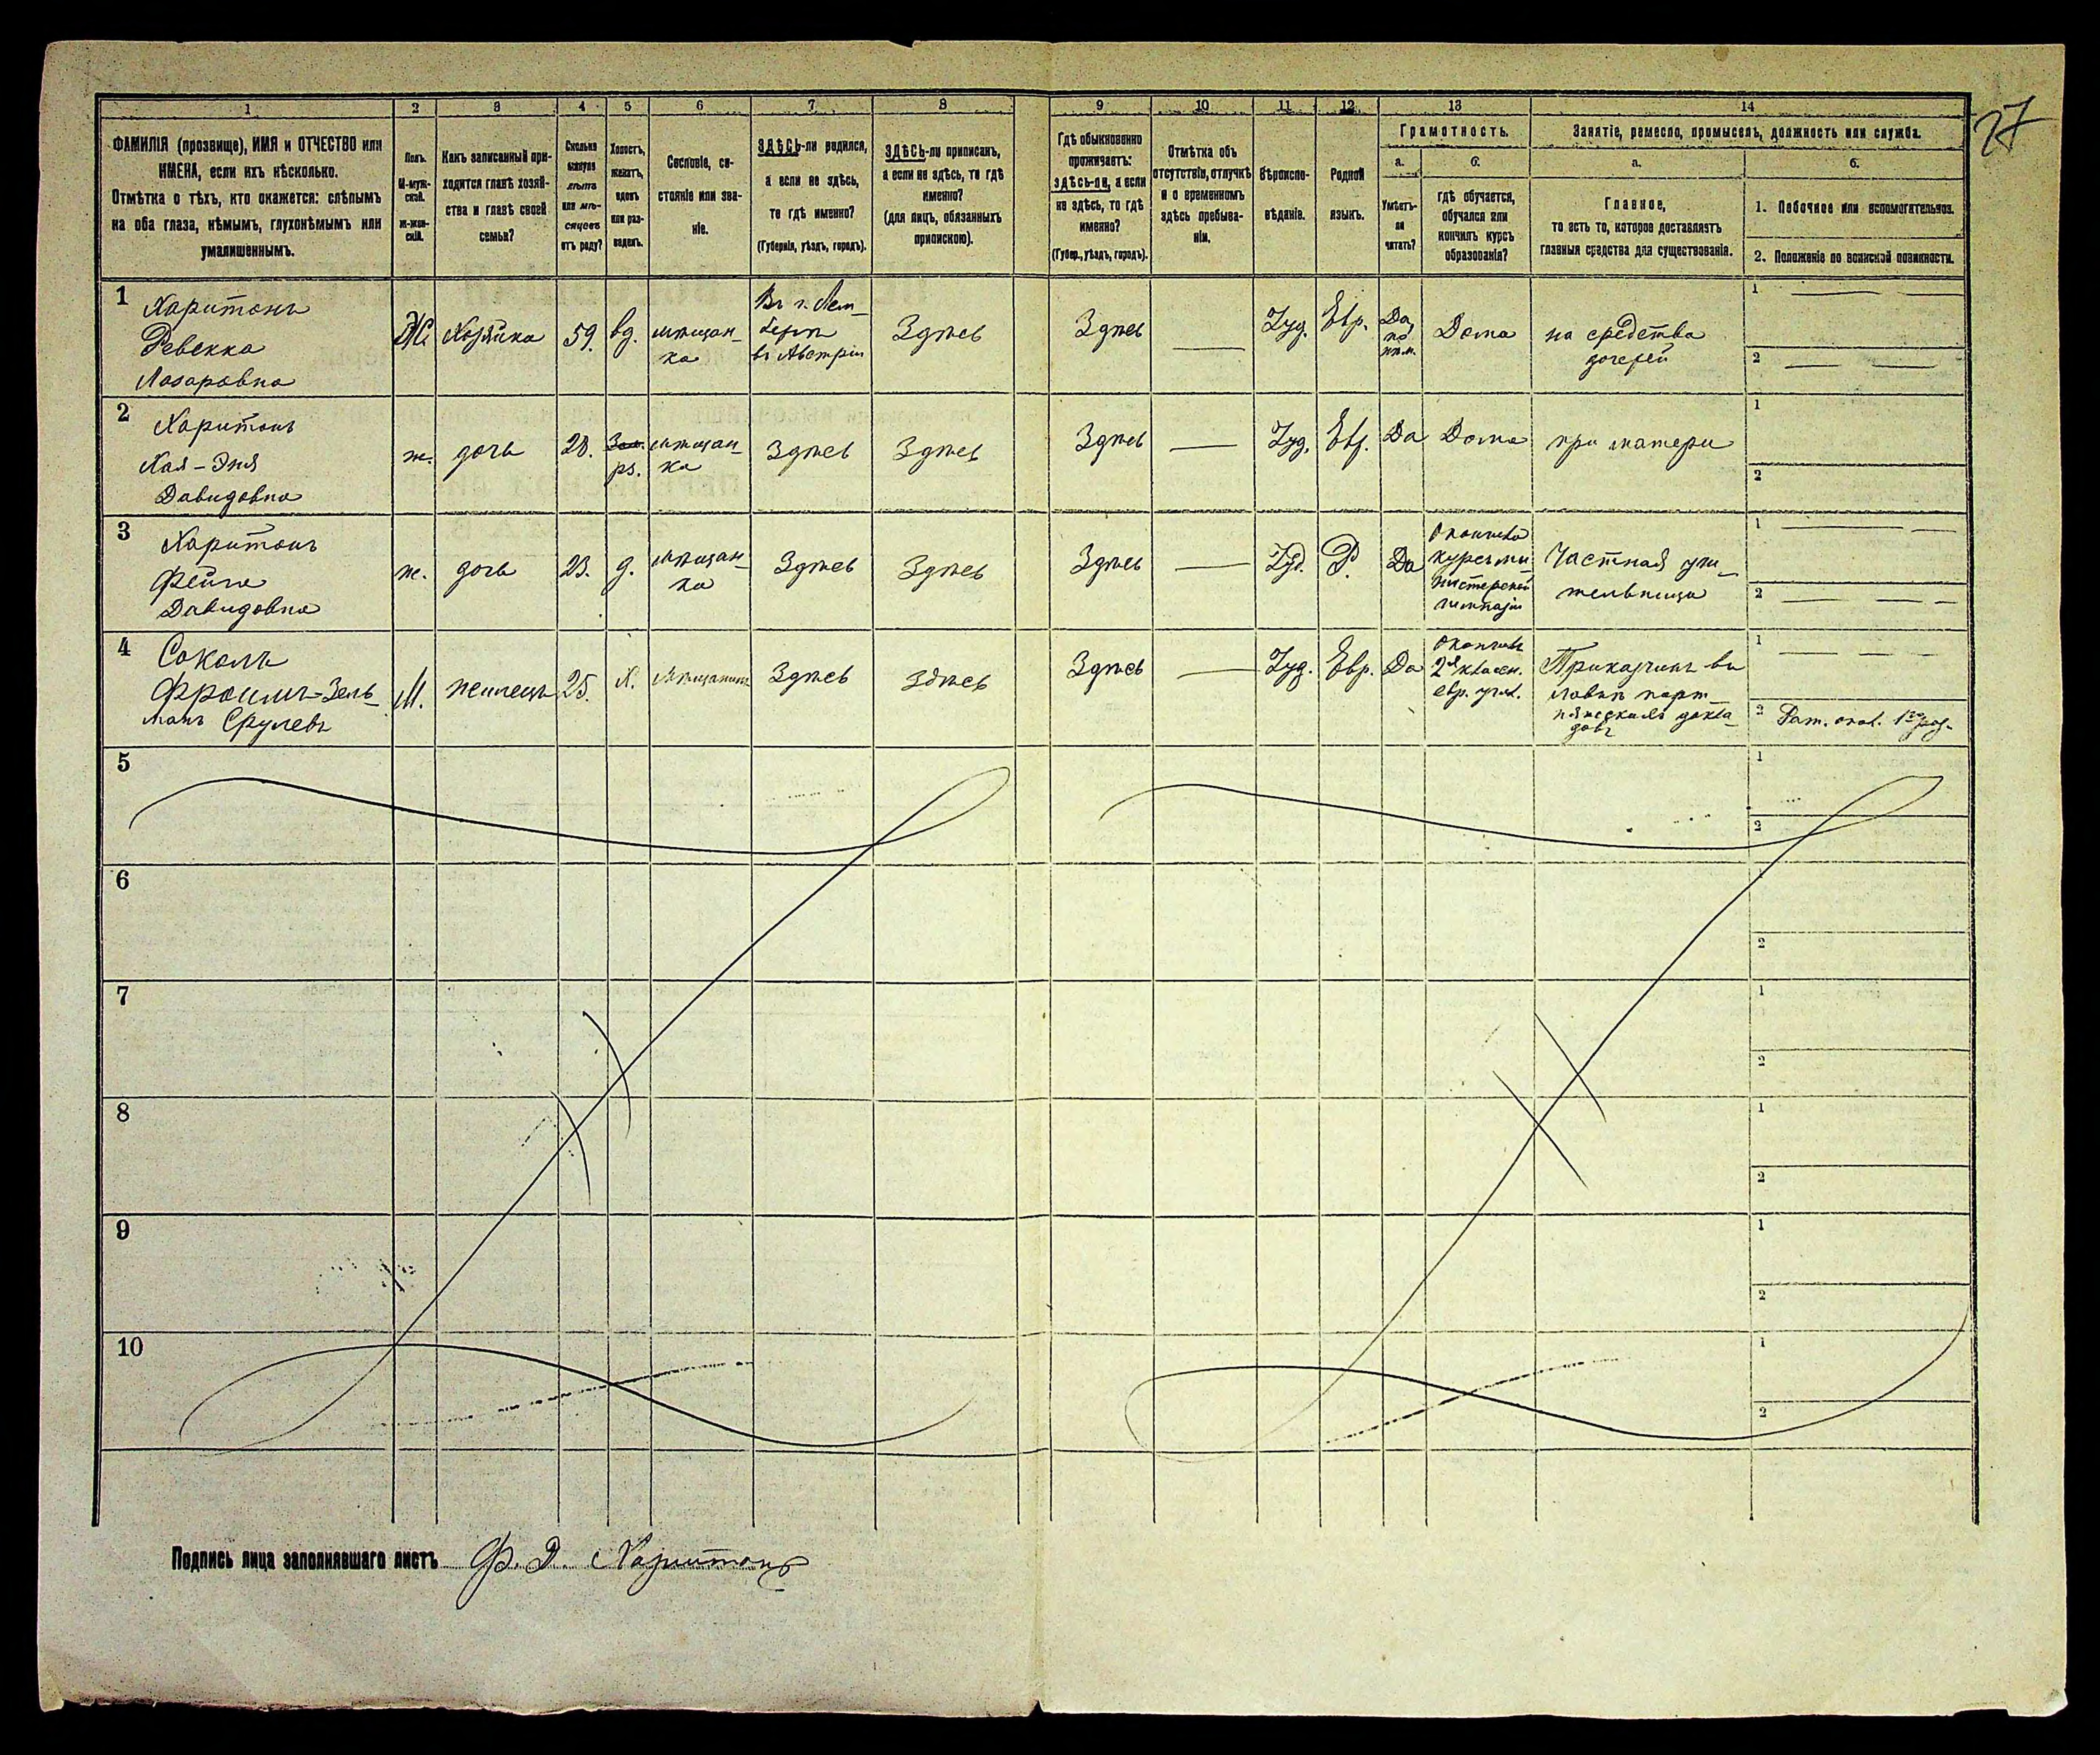 27
1
2
3
4
5
6
7
8
9
10
11
12
13
14
ФАМИЛІЯ (прозвище), ИМЯ и ОТЧЕСТВО или
ИМЕНА, если ихъ нѣсколько.
Отмѣтка о тѣхъ, кто окажется: слѣпымъ
на оба глаза, нѣмымъ, глухонѣмымъ или
умалишеннымъ.
Полъ.
М-муж-
ской.
ж-жен-
скій.
Какъ записанный при-
ходится главѣ хозяй-
ства и главѣ своей
семьи?
Сколько
минуло
лѣтъ
или мѣ-
сяцевъ
отъ роду?
Холостъ,
женатъ,
вдовъ
или раз-
веденъ.
Сословіе, со-
стояніе или зва-
ніе.
ЗДѢСЬ-ли родился,
а если не здѣсь,
то гдѣ именно?
(Губернія, уѣздъ, городъ).
ЗДѢСЬ-ли приписанъ,
а если не здѣсь, то гдѣ
именно?
(для лицъ, обязанныхъ
припискою).
Гдѣ обыкновенно
проживаетъ:
здѣсь-ли, а если
не здѣсь, то гдѣ
именно?
(Губер., уѣздъ, городъ).
Отмѣтка объ
отсутствіи, отлучкѣ
и о временномъ
здѣсь пребыва-
ніи.
Вѣроиспо-
вѣданіе.
Родной
языкъ.
Грамотность.
а.
Умѣетъ-
ли
читать?
б.
гдѣ обучается,
обучался или
кончилъ курсъ
образованія?
Занятіе, ремесло, промыселъ, должность или служба.
а.
Главное,
то есть то, которое доставляетъ
главныя средства для существованія.
б.
1. Побочное или вспомогательное.
2. Положеніе по воинской повинности.
1
Харитонъ
Ревекка
Лазаровна
Ж.
Хозяйка
59.
вд.
мѣщан-
ка
Въ г. Лем-
бергѣ
въ Австріи
Здѣсь
Здѣсь
Іуд.
Евр.
Да,
Дома
на средства
дочерей
1
2
2
Харитонъ
Хая-Эня
Давидовна
ж.
дочь
28.
рз.
мѣщан-
ка
Здѣсь
Здѣсь
Здѣсь
Іуд.
Евр.
Да
Дома
при матери
1
2
3
Харитонъ
Фейга
Давидовна
ж.
дочь
23.
д.
мѣщан-
ка
Здѣсь
Здѣсь
Здѣсь
Іуд.
Р.
Да
Окончила
курсъ ми-
нистерской
гимназіи
Частная учи-
тельница
1
2
4
Соколъ
Фроимъ-Зель-
манъ Срулевъ
М.
жилецъ
25.
Х.
Мѣщанинъ
Здѣсь
здѣсь
Здѣсь
Іуд.
Евр.
Да
Окончилъ
2хъ классн.
евр. учил.
Приказчикъ въ
1
2 Рат. опол. 1го раз.
5
1
2
6
1
2
7
1
2
8
1
2
9
1
2
10
1
2
Подпись лица заполнявшаго листъ Ф. Д. Харитонъ